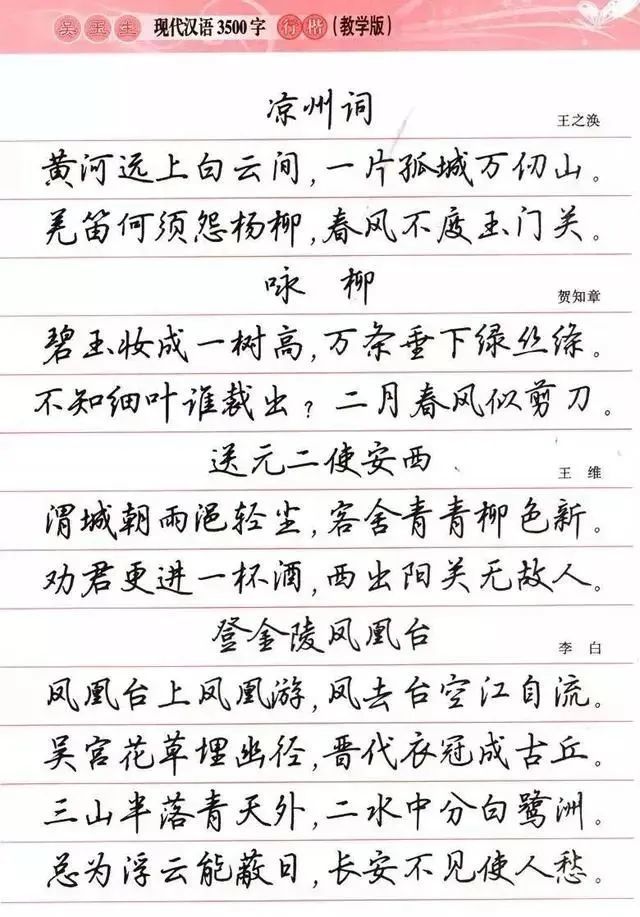 吴玉生 现代汉语3500字 行楷 (教学版)
凉州词 王之涣
黄河远上白云间,一片孤城万仞山。
羌笛何须怨杨柳,春风不度玉门关。
咏 柳 贺知章
碧玉妆成一树高,万条垂下绿丝绦。
不知细叶谁裁出?二月春风似剪刀。
送元二使安西 王 维
渭城朝雨浥轻尘,客舍青青柳色新。
劝君更进一杯酒,西出阳关无故人。
登金陵凤凰台 李 白
凤凰台上凤凰游,凤去台空江自流。
吴宫花草埋幽径,晋代衣冠成古丘。
三山半落青天外,二水中分白鹭洲。
总为浮云能蔽日,长安不见使人愁。